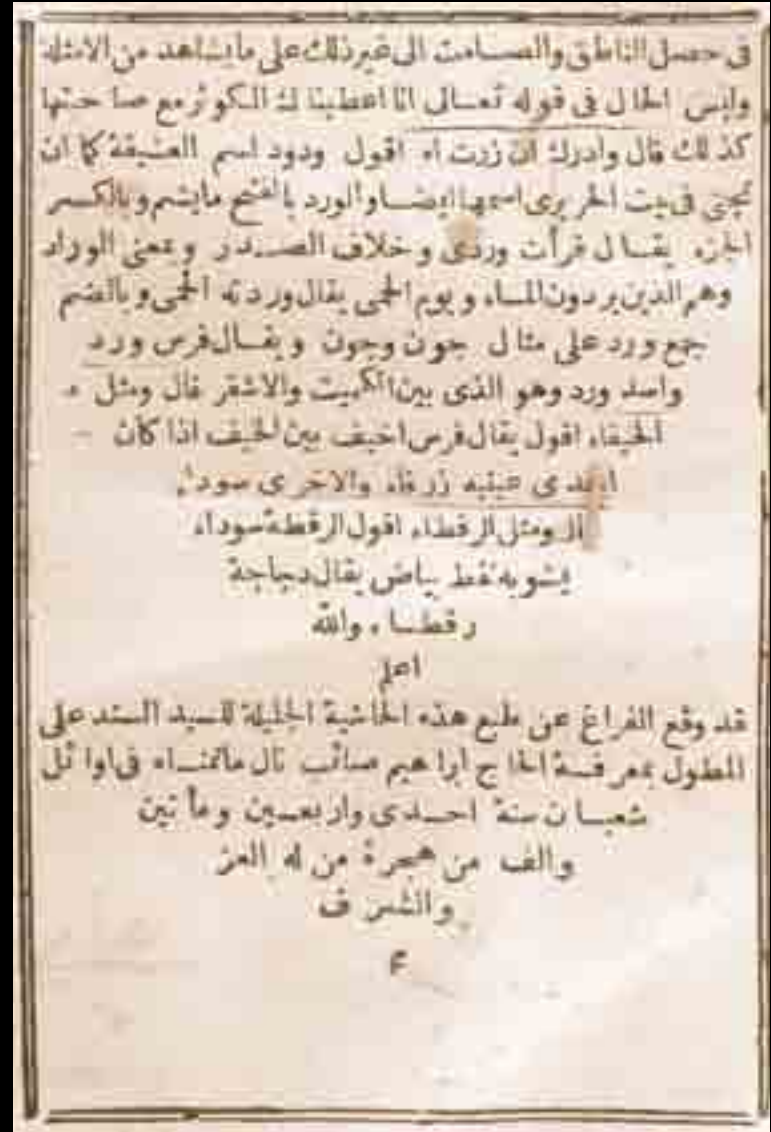 فى حصل الناطق والصامت الى غير ذلك على ما يشاهد من الامثلة
وليس الحال فى قوله تعالى انا اعطيناك الكوثر مع صاحبها
كذلك قال وادرك ان زرت اه اقول ودود اسم العشيقة كما ان
تجنى فى بيت الحريرى اسمها ايضا والورد بالفتح ما يشم وبالكسر
الجزء يقال قرأت وردى وخلاف الصدر وبمعنى الوراد
وهم الذين يردون الماء ويوم الحمى يقال وردته الحمى وبالضم
جمع ورد على مثال جون وجون ويقال فرس ورد
واسد ورد وهو الذى بين الكميت والاشقر قال ومثل
الخيفاء اقول يقال فرس اخيف بين الخيف اذا كان
احدى عينيه زرقاء والاخرى سوداء
قال ومثل الرقطاء اقول الرقطة سوداء
يشوبه نقط بياض يقال دجاجة
رقطاء والله
اعلم
قد وقع الفراغ عن طبع هذه الحاشية الجليلة للسيد السند على
المطول بمعرفة الحاج ابراهيم صائب نال ما تمناه فى اوائل
شعبان سنة احدى واربعين ومأتين
والف من هجرة من له العز
والشرف
م